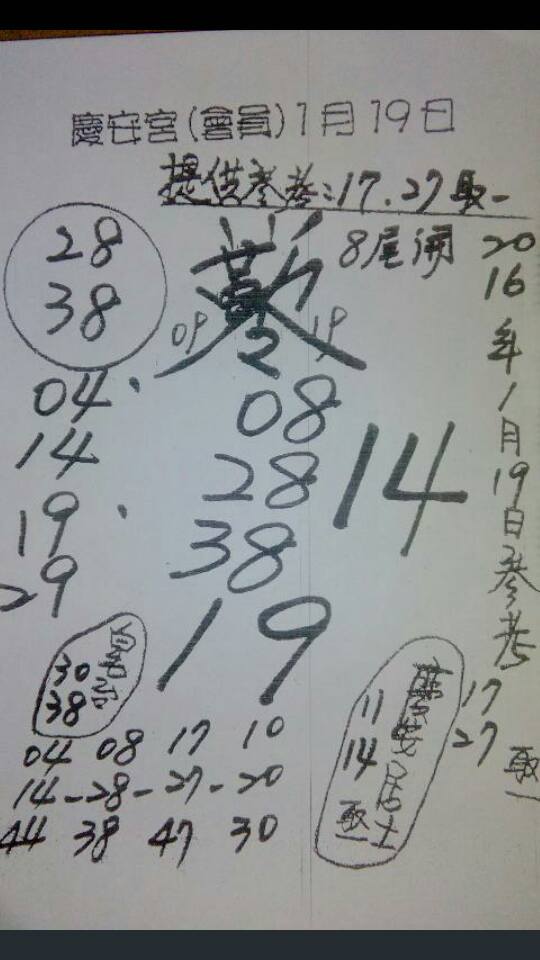 慶安宮(會員)1月19日
提供參考:17.27取一
28
38
8尾湧
2016年1月19日參考
09 19
04.
14
19.
29
08
28
38
14
19
30
38
04 08 17 10
14-28-27-20
44 38 47 30
慶安居士
11
14
取一
17
27
取一